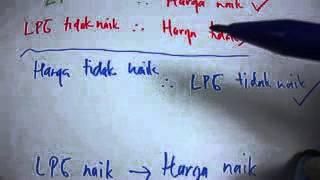 ∴ Harga naik ✓
LPG tidak naik ∴ Harga
Harga tidak naik
∴ LPG tidak naik ✓
LPG naik → Harga naik